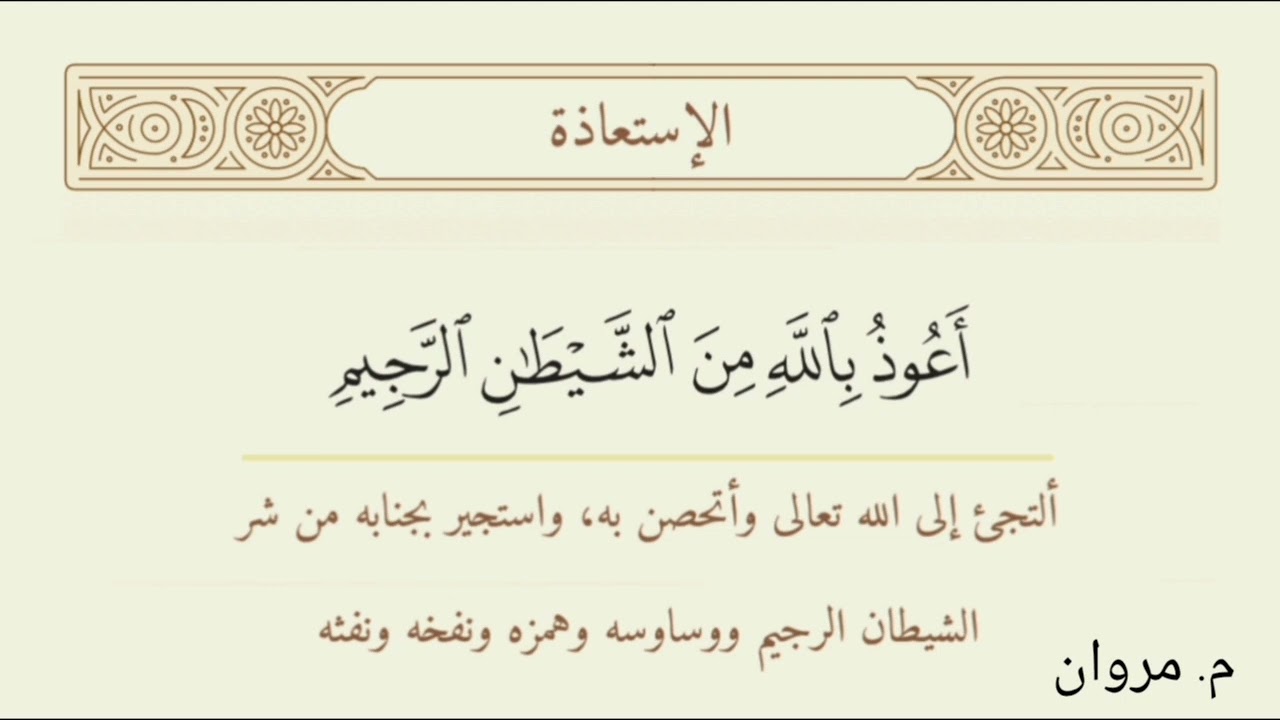 الإستعاذة
أَعُوذُ بِٱللَّهِ مِنَ ٱلشَّيْطَـٰنِ ٱلرَّجِيمِ
ألتجئ إلى الله تعالى وأتحصن به، واستجير بجنابه من شر
الشيطان الرجيم ووساوسه وهمزه ونفخه ونفثه
م. مروان